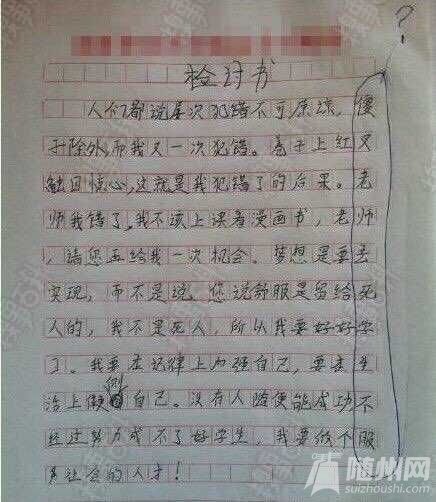 ?
检讨书
人们都说屡次犯错不可原谅，傻
子除外，而我又一次犯错。卷子上红叉
触目惊心，这就是我犯错了的后果。老
师我错了，我不该上课看漫画书，老师
，请您再给我一次机会。梦想是要去
实现，而不是说。您说舒服是留给死
人的，我不是死人，所以我要好好学
习。我要在纪律上加强自己，要在生
活上做自己。没有人随便能成功不
经过努力成不了好学生，我要做个服
务社会的人才！
随州网
suizhoushi.com